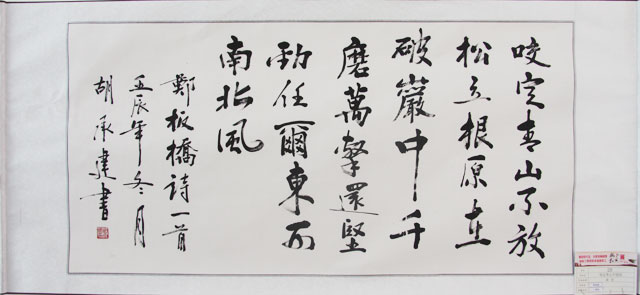 咬定青山不放
松立根原在
破巖中千
磨萬擊還堅
勁任爾東西
南北風
鄭板橋詩一首
壬辰年冬月
胡承建書